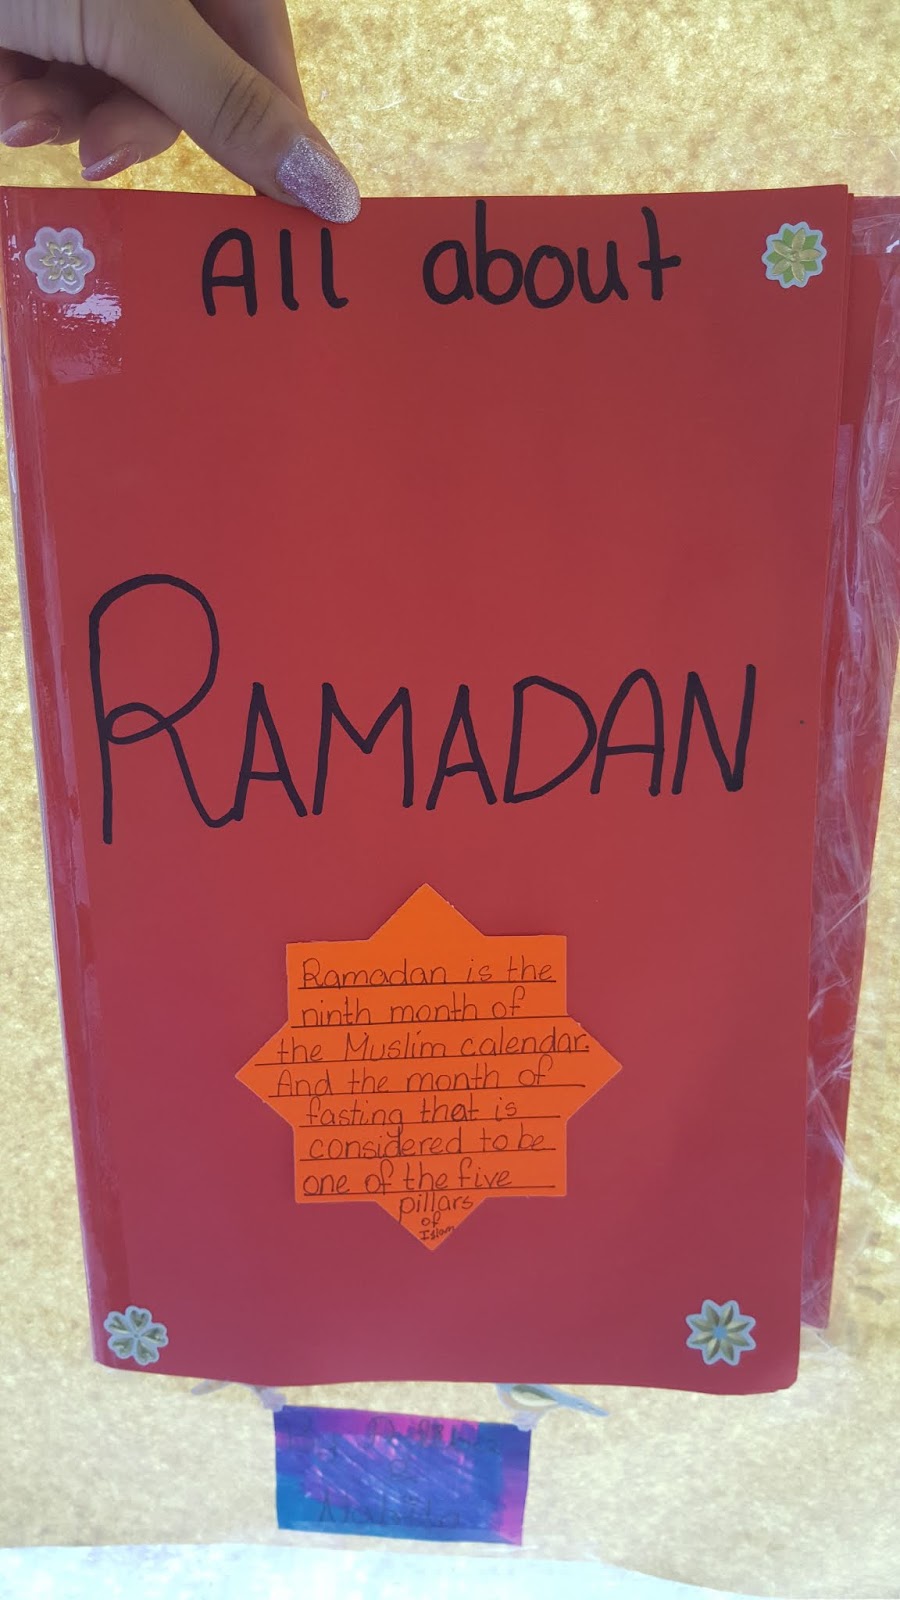 All about
RAMADAN
Ramadan is the
ninth month of
the Muslim calendar.
And the month of
fasting that is
considered to be
one of the five
pillars
of
Islam